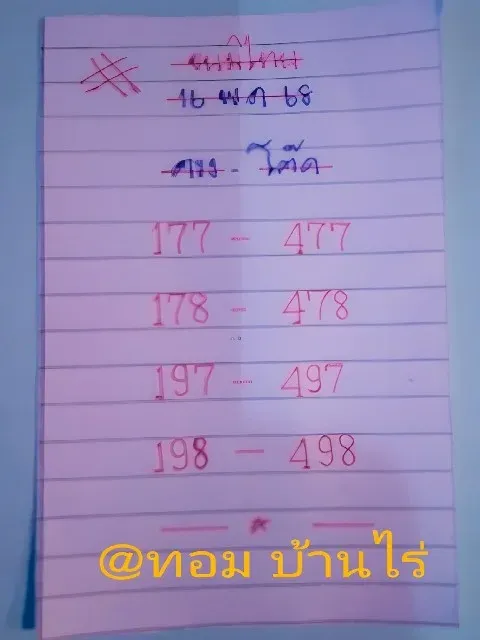 แม่ไทย
16 พค 68
ตรง - โต๊ด
177 - 477
178 - 478
197 - 497
198 - 498
@ทอม บ้านไร่